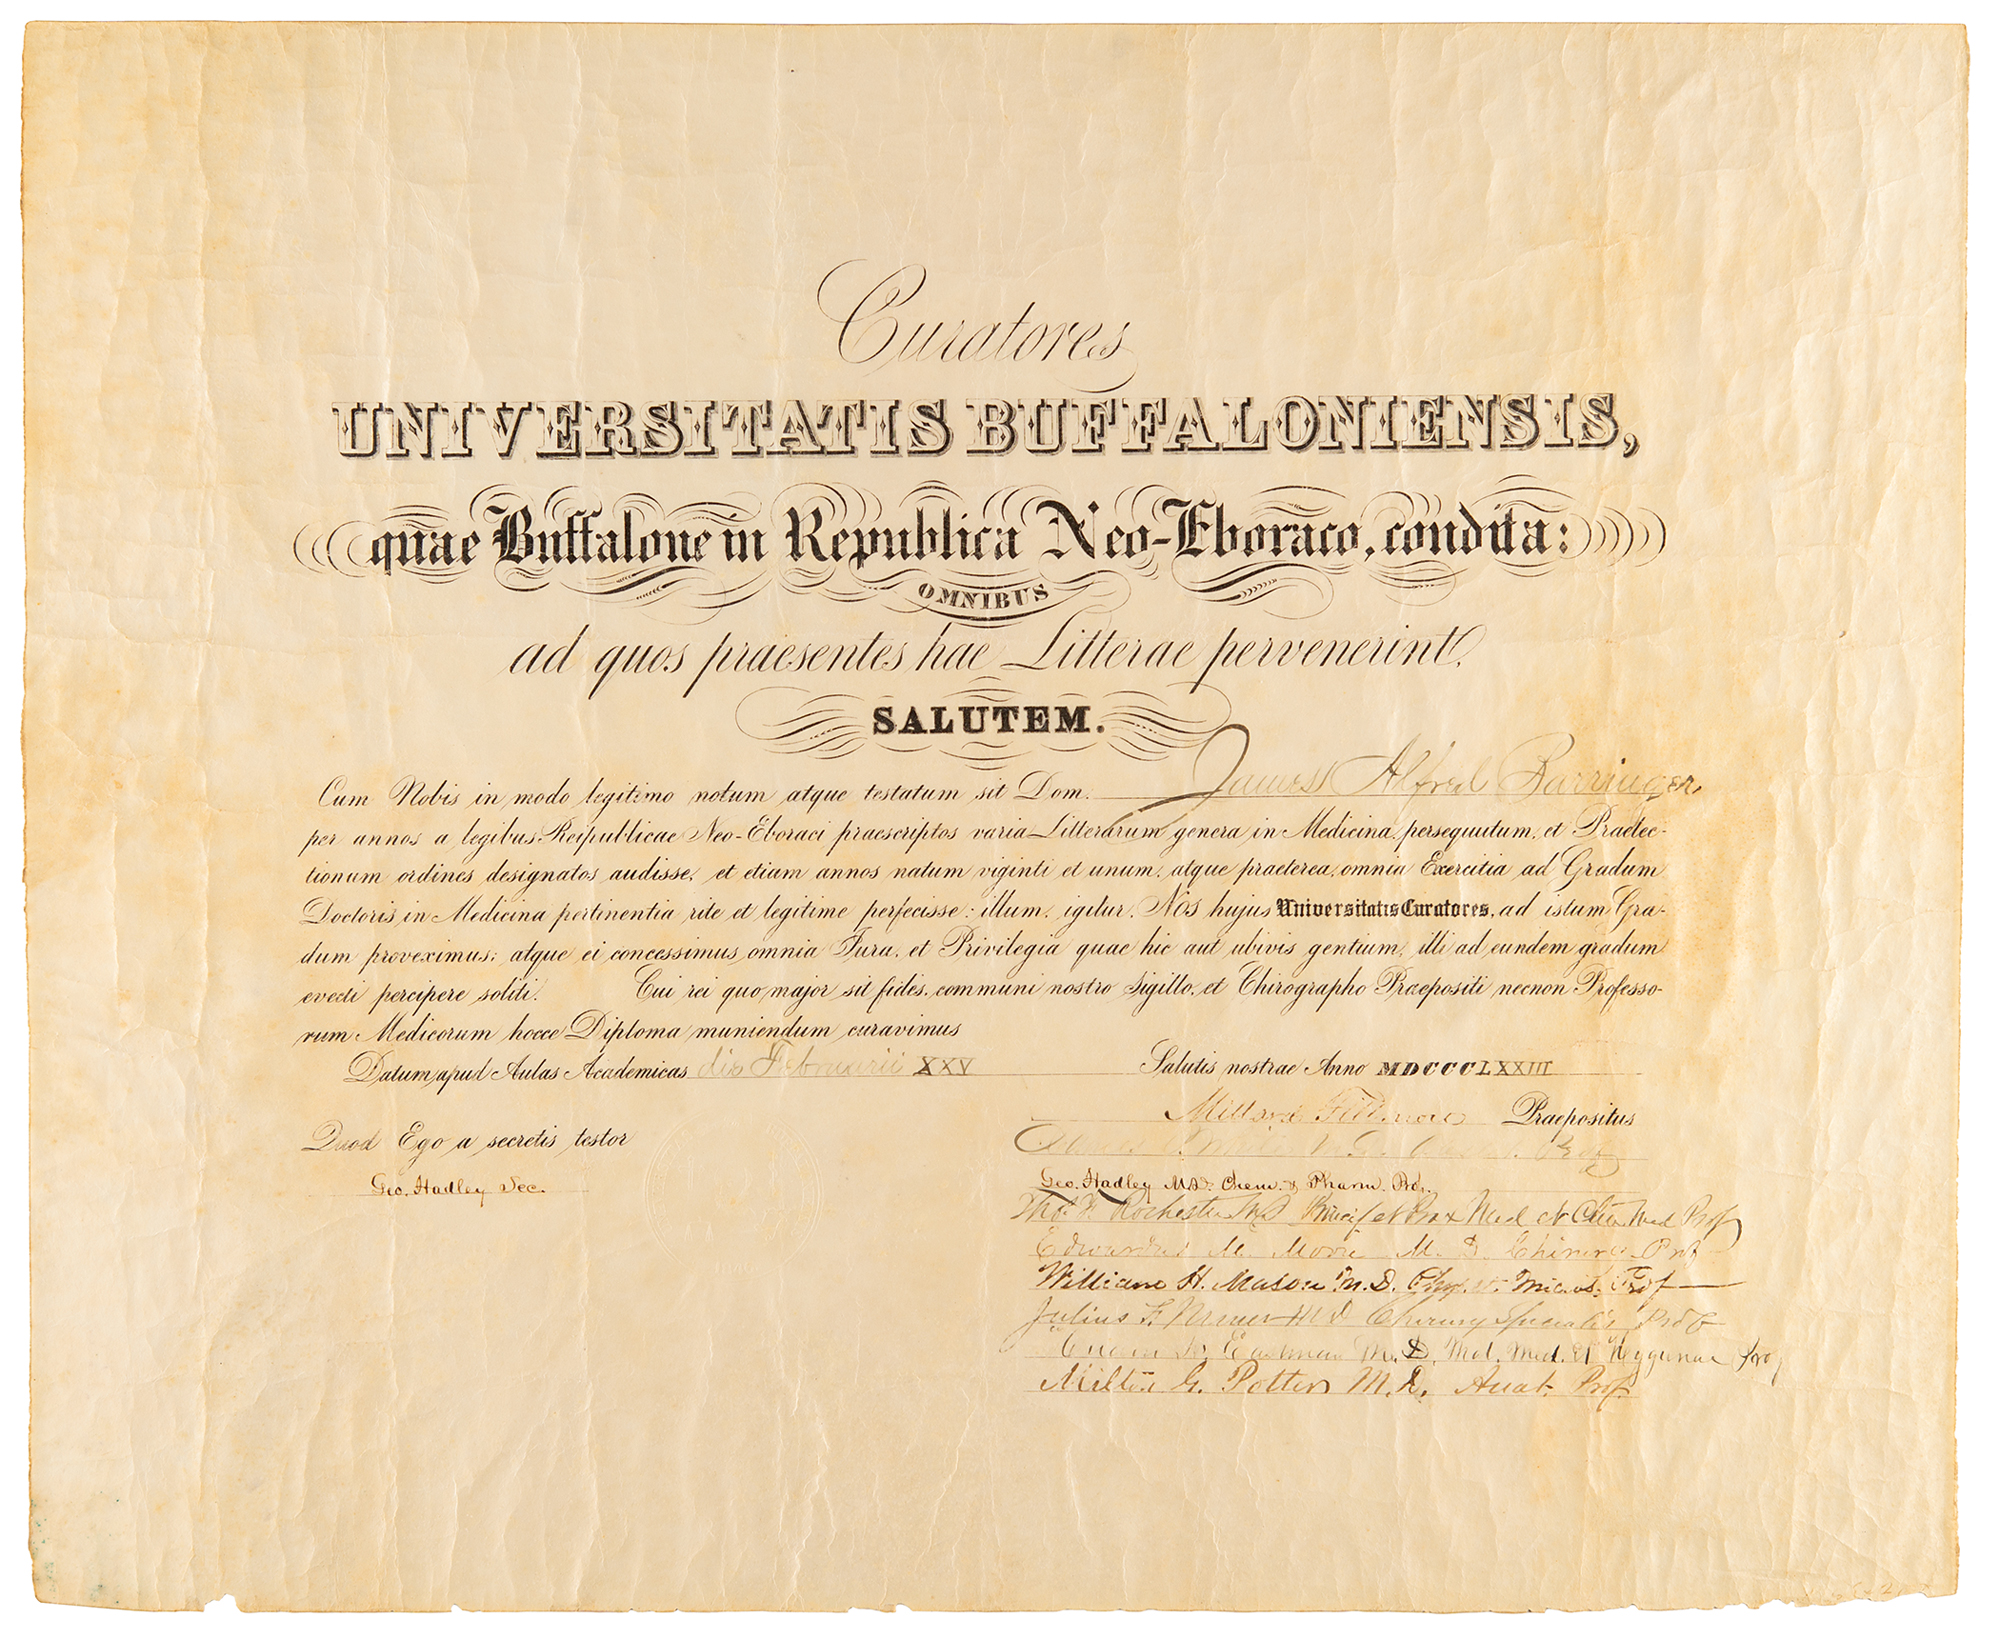 Curatores
UNIVERSITATIS BUFFALONIENSIS,
quae Buffalone in Republica Neo-Eboraco, condita:
OMNIBUS
ad quos praesentes hae Litterae pervenerint,
SALUTEM.
Cum Nobis in modo legitimo notum atque testatum sit Dom. James Alfred Barringer,
per annos a legibus Reipublicae Neo-Eboraci praescriptos varia Litterarum genera in Medicina persequutum, et Praelec-
tionum ordines designatos audisse, et etiam annos natum viginti et unum, atque praeterea, omnia Exercitia ad Gradum
Doctoris in Medicina pertinentia rite et legitime perfecisse: illum, igitur, Nos hujus Universitatis Curatores, ad istum Gra-
dum proveximus; atque ei concessimus omnia Jura, et Privilegia quae hic aut ubivis gentium, illi ad eundem gradum
evecti percipere soliti. Cui rei quo major sit fides, communi nostro Sigillo, et Chirographo Praepositi necnon Professo-
rum Medicorum hocce Diploma muniendum curavimus
Datum apud Aulas Academicas die Februarii XXV Salutis nostrae Anno MDCCCLXXIII
Millard Fillmore Praepositus
Quod Ego a secretis testor
Geo. Hadley Sec.
Geo. Hadley M.D. Chem. & Pharm. Prof.
Tho. F. Rochester M.D. Princip et Prax Med et Clin Med Prof
Edwardus M. Moore M. D. Chirurg. Prof
William H. Mason M.D. Phys. et Micros. Prof
Julius F. Miner M D Chirurg Specialis Prof
Eastman M. D. Mat. Med. et Hygienae Prof
Milton G. Potter M.D. Anat. Prof.